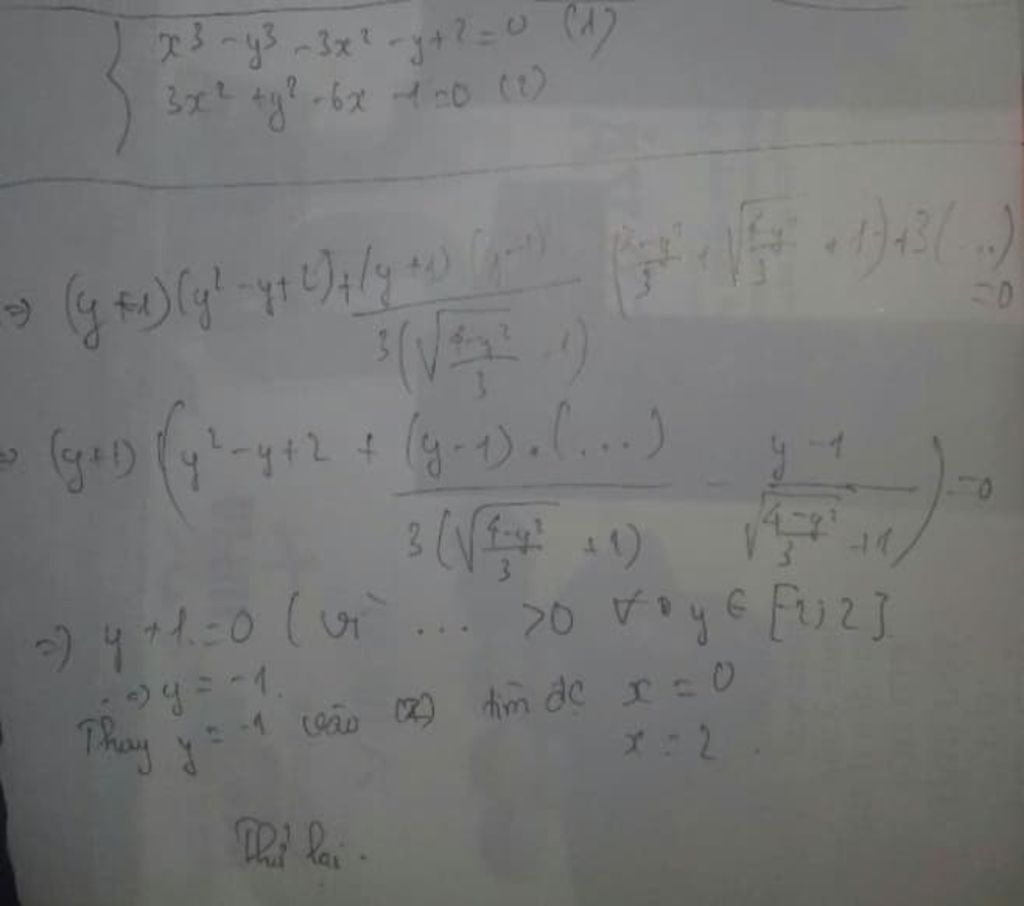 x³ - y³ - 3x² - y + 2 = 0 (1)
3x² + y² - 6x - 1 = 0 (2)
⇒ (y+1)(y² - y + 2) + (y+1)(y-1) / 3(√((4-y²)/3) - 1) ((4-y²)/3 + √((4-y²)/3) + 1) + 3(...) = 0
⇒ (y+1)(y² - y + 2 + (y-1).(...) / 3(√((4-y²)/3) + 1) - (y-1) / (√((4-y²)/3) + 1)) = 0
⇒ y + 1 = 0 (vì ... > 0 ∀ y ∈ [-2; 2]
⇒ y = -1.
Thay y = -1 vào (2) tìm đc x = 0
x = 2.
Thử lại.